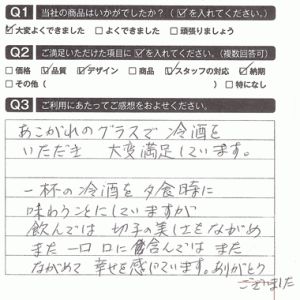 Q1 当社の商品はいかがでしたか？（☑を入れてください。）
☑大変よくできました □よくできました □頑張りましょう
Q2 ご満足いただけた項目に☑を入れてください。（複数回答可）
□価格 ☑品質 ☑デザイン □商品 ☑スタッフの対応 ☑納期
□その他（ ） □特になし
Q3 ご利用にあたってご感想をおよせください。
あこがれのグラスで冷酒を
いただき 大変満足しています。
一杯の冷酒を夕食時に
味わうことにしていますが
飲んでは 切子の美しさをながめ
また一口 口に含んでは また
ながめて 幸せを感じています。ありがとう
ございました